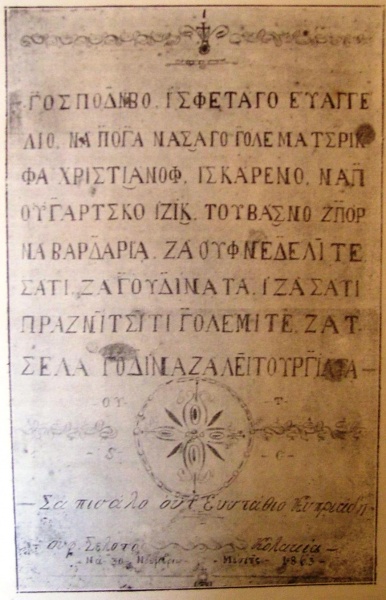 Γ̈ΟСΠΟΔ̈ΝΒΟ. ΙСΦΕΤΑΓΟ ΕΥΑΓΓΕ
ΛΙΟ. ΝΑ Π̈ΟΓ̈Α ΝΑСΑΓΟ Γ̈ΟΛΕΜΑ ΤСΡΙΚ
ΦΑ ΧΡΙСΤΙΑΝΟΦ. ΙСΚΑΡΕΝΟ. ΝΑΠ̈
ΟΥΓ̈ΑΡΤСΚΟ ΙΖΙΚ. ΤΟΥΒΑСΝΟ ΖΠΟΡ
ΝΑ ΒΑΡΔ̈ΑΡΙΑ. ΖΑ ΟΥΦ ΝΕΔ̈ΕΛΙ ΤΕ
СΑΤΙ. ΖΑ Γ̈ΟΥΔ̈ΙΝΑΤΑ. Ι ΖΑ СΑΤΙ
ΠΡΑΖΝ̈ΙΤСΙΤΙ Γ̈ΟΛΕΜΙΤΕ. ΖΑ Τ
СΕΛΑ Γ̈ΟΔ̈ΙΝΑ ΖΑ ΛΕΙΤΟΥΡΓ̈ΙΑΤΑ —
- ΟΥ - - Τ -
— Σα πισάλο οὐτ Ευστάθιο Κυπριάδη —
Σελότο Κολακία —
- Να 30 - Μέσετς - 1863 -